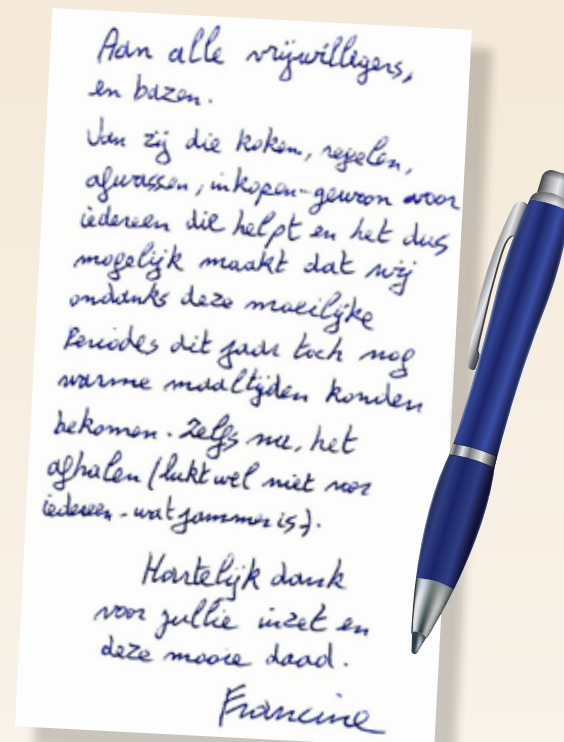 Aan alle vrijwilligers,
en bazen.
Van zij die koken, regelen,
afwassen, inkopen-gewoon voor
iedereen die helpt en het dus
mogelijk maakt dat wij
ondanks deze moeilijke
Periodes dit jaar toch nog
warme maaltijden konden
bekomen. Zelfs nu, het
afhalen (lukt wel niet voor
iedereen - wat jammer is).
Hartelijk dank
voor jullie inzet en
deze mooie daad.
Francine